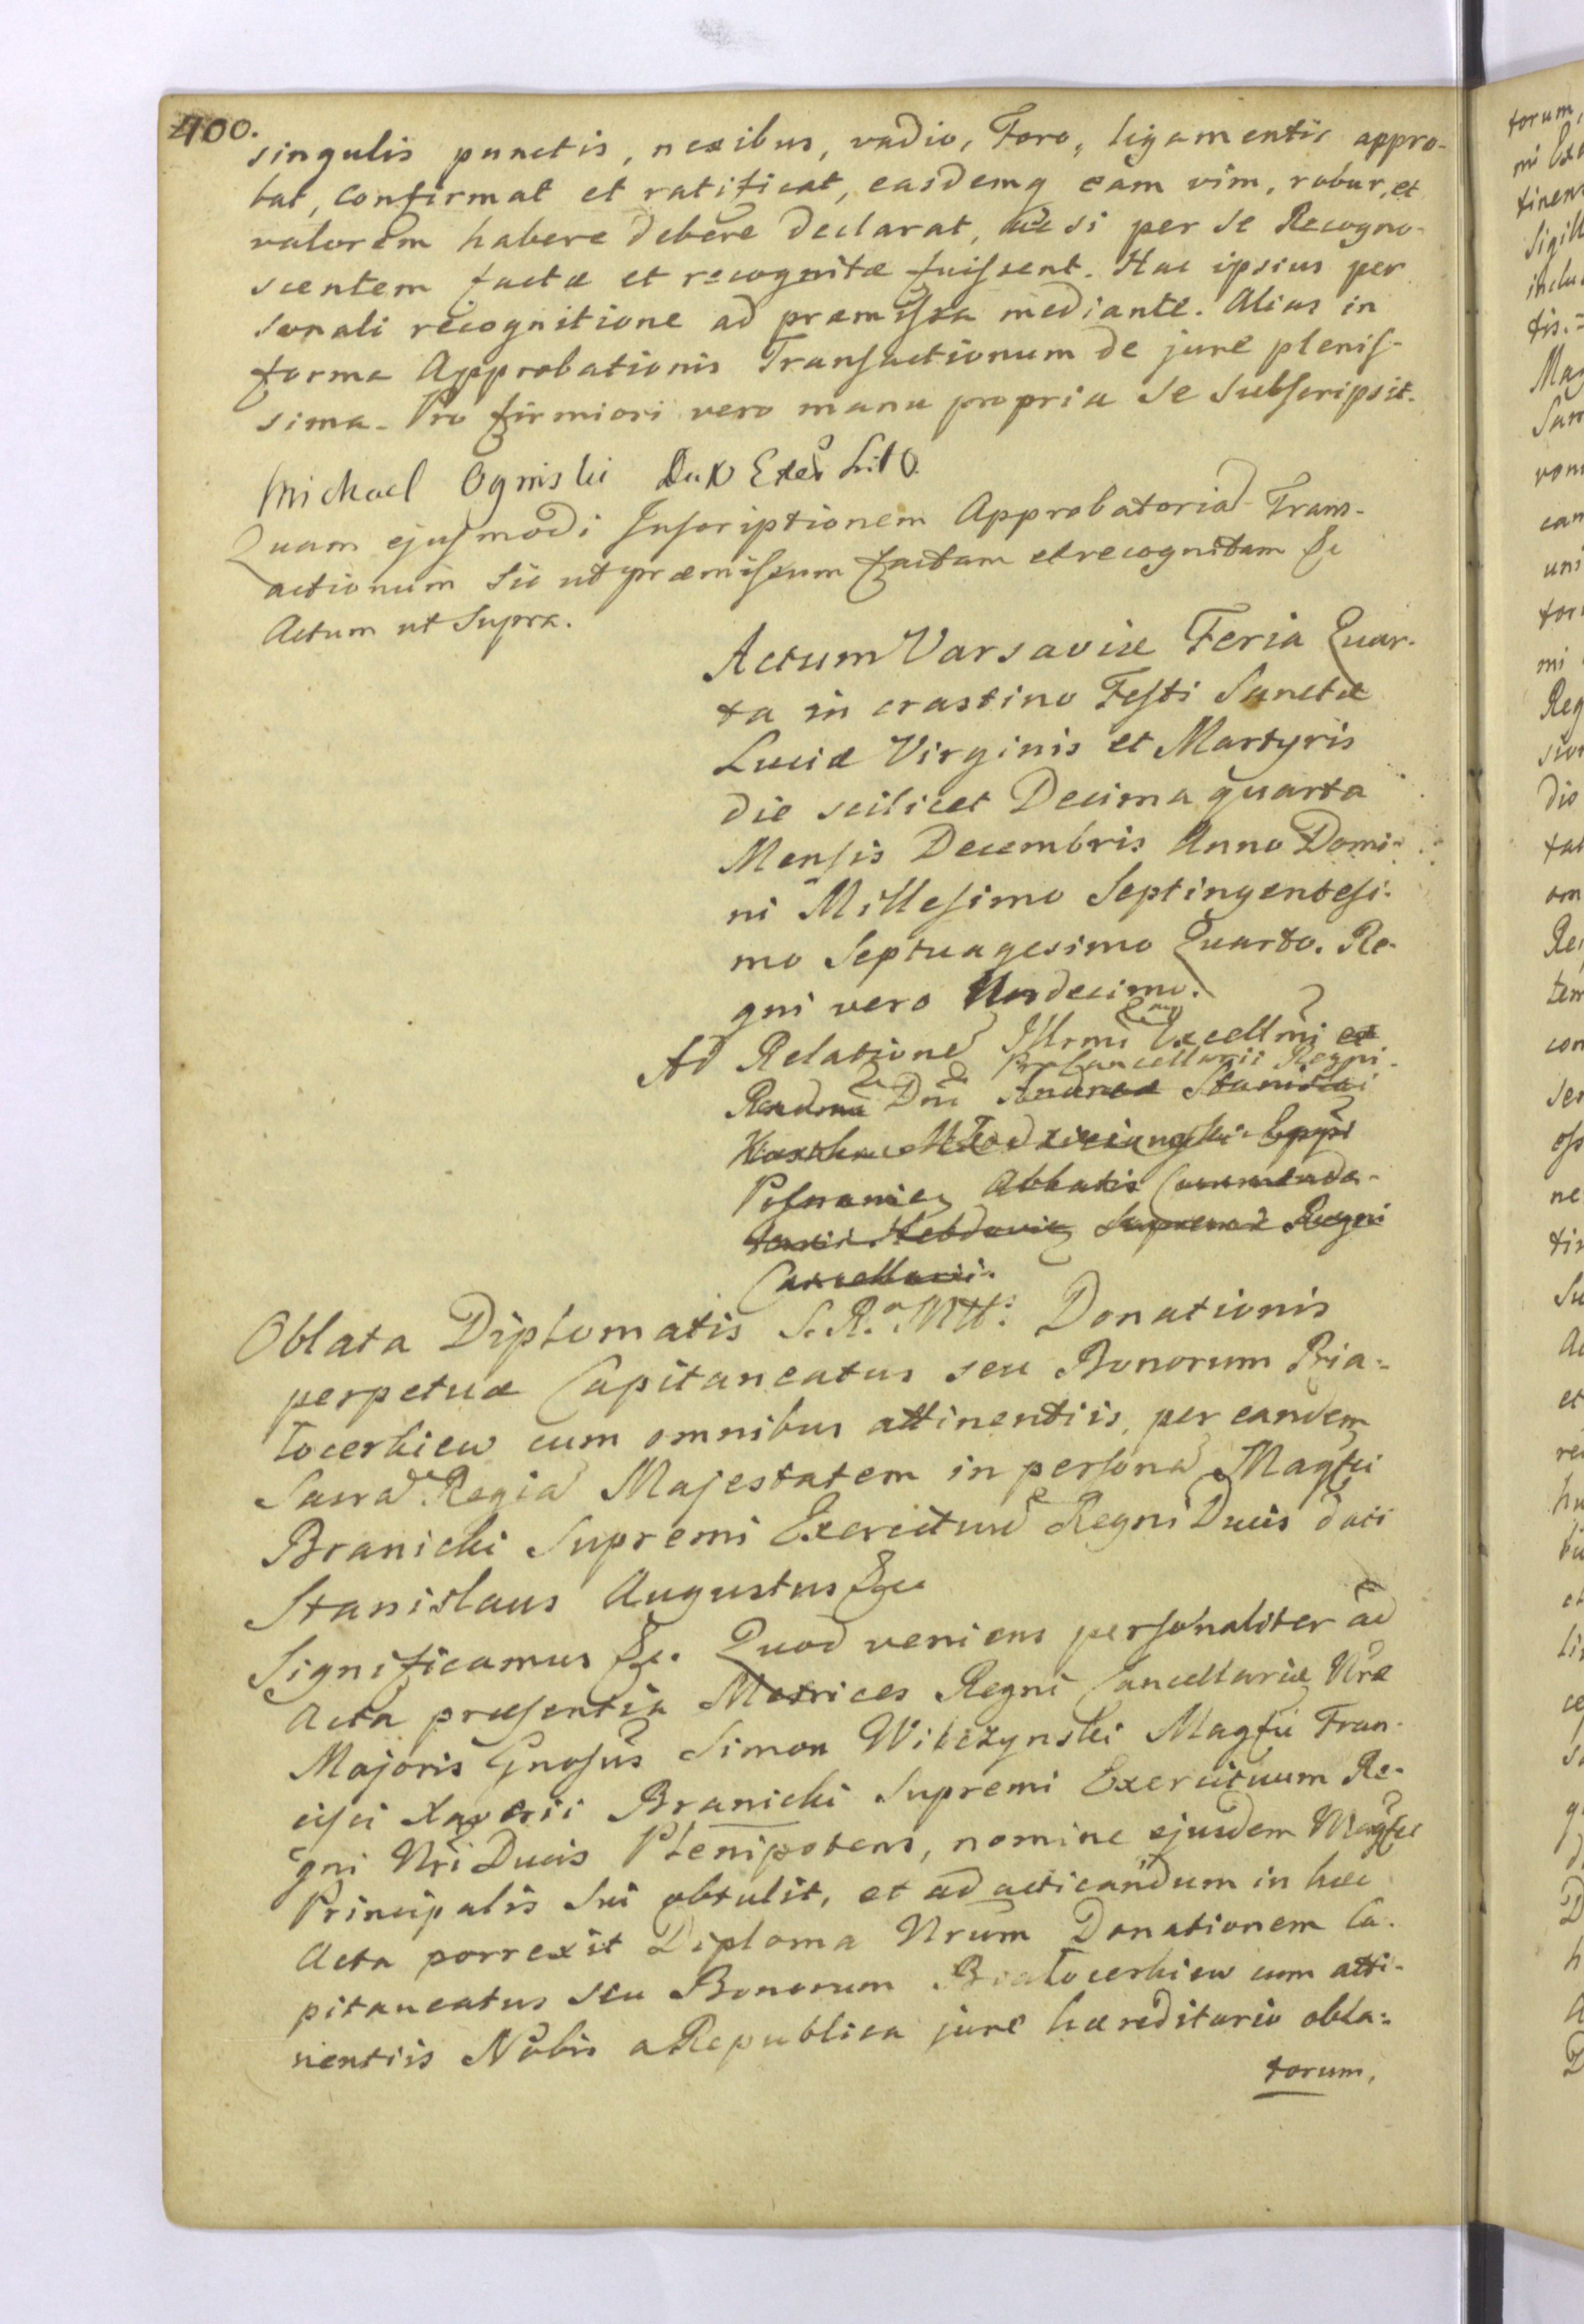 400.
singulis punctis, nexibus, vadio, Foro, ligamentis appro-
bat, confirmat et ratificat, easdemq eam vim, robur, et
valorem habere debere declarat, ac si per se Recogno-
scentem factæ et recognitæ fuissent. Hac ipsius per
sonali recognitione ad præmissa mediante. Alias in
forma Approbationis Transactionum de jure plenis-
sima. Pro firmiori vero manu propria se subscripsit.
Michael Oginski Dux
Quam ejusmodi Inscriptionem Approbatoriā Trans-
actionum sic ut præmissum factam et recognitam &
Actum ut Supra.
Actum Varsaviæ Feria Quar-
ta in crastino Festi Sanctæ
Luciæ Virginis et Martyris
die scilicet Decima quarta
Mensis Decembris Anno Domi-
ni Millesimo Septingentesi-
mo Septuagesimo Quarto. Re-
gni vero Undecimo.
Ad Relationē Illrmi Excellmi et
ProCancellarii Regni.
Rndmi Dni Andreæ Stanislai
Kostka Młodzieiowski Eppi
Posnanien Abbatis Commenda-
tarii Hebdovien Supremi Regni
Cancellarii.
Oblata Diplomatis S. R. Mtt: Donationis
perpetuæ Capitaneatus seu Bonorum Bia-
łocerkiew cum omnibus attinentiis, per eandem
Sacrā Regiā Majestatem in personā Magfci
Branicki Supremi Exercituū Regni Ducis daci
Stanislaus Augustus &c
Significamus &c. Quod veniens personaliter ad
Acta præsentia Metrices Regni Cancellariæ Nræ
Majoris Gnosus Simon Wilczynski Magfci Fran-
cisci Xaverii Branicki Supremi Exercituum Re-
gni Nri Ducis Plenipotens, nomine ejusdem Magfci
Principalis sui obtulit, et ad acticandum in hæc
Acta porrexit Diploma Nrum Donationem Ca-
pitaneatus seu Bonorum Białocerkiew cum atti-
nentiis Nobis a Republica jure hæreditario obla-
torum,